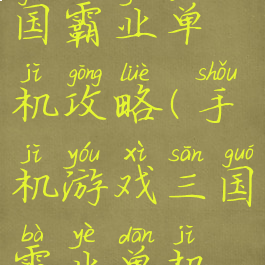 国霸业单
jī gōng lüè shǒu
机攻略(手
jī yóu xì sān guó
机游戏三国
bà yè dān jī
霸业单机